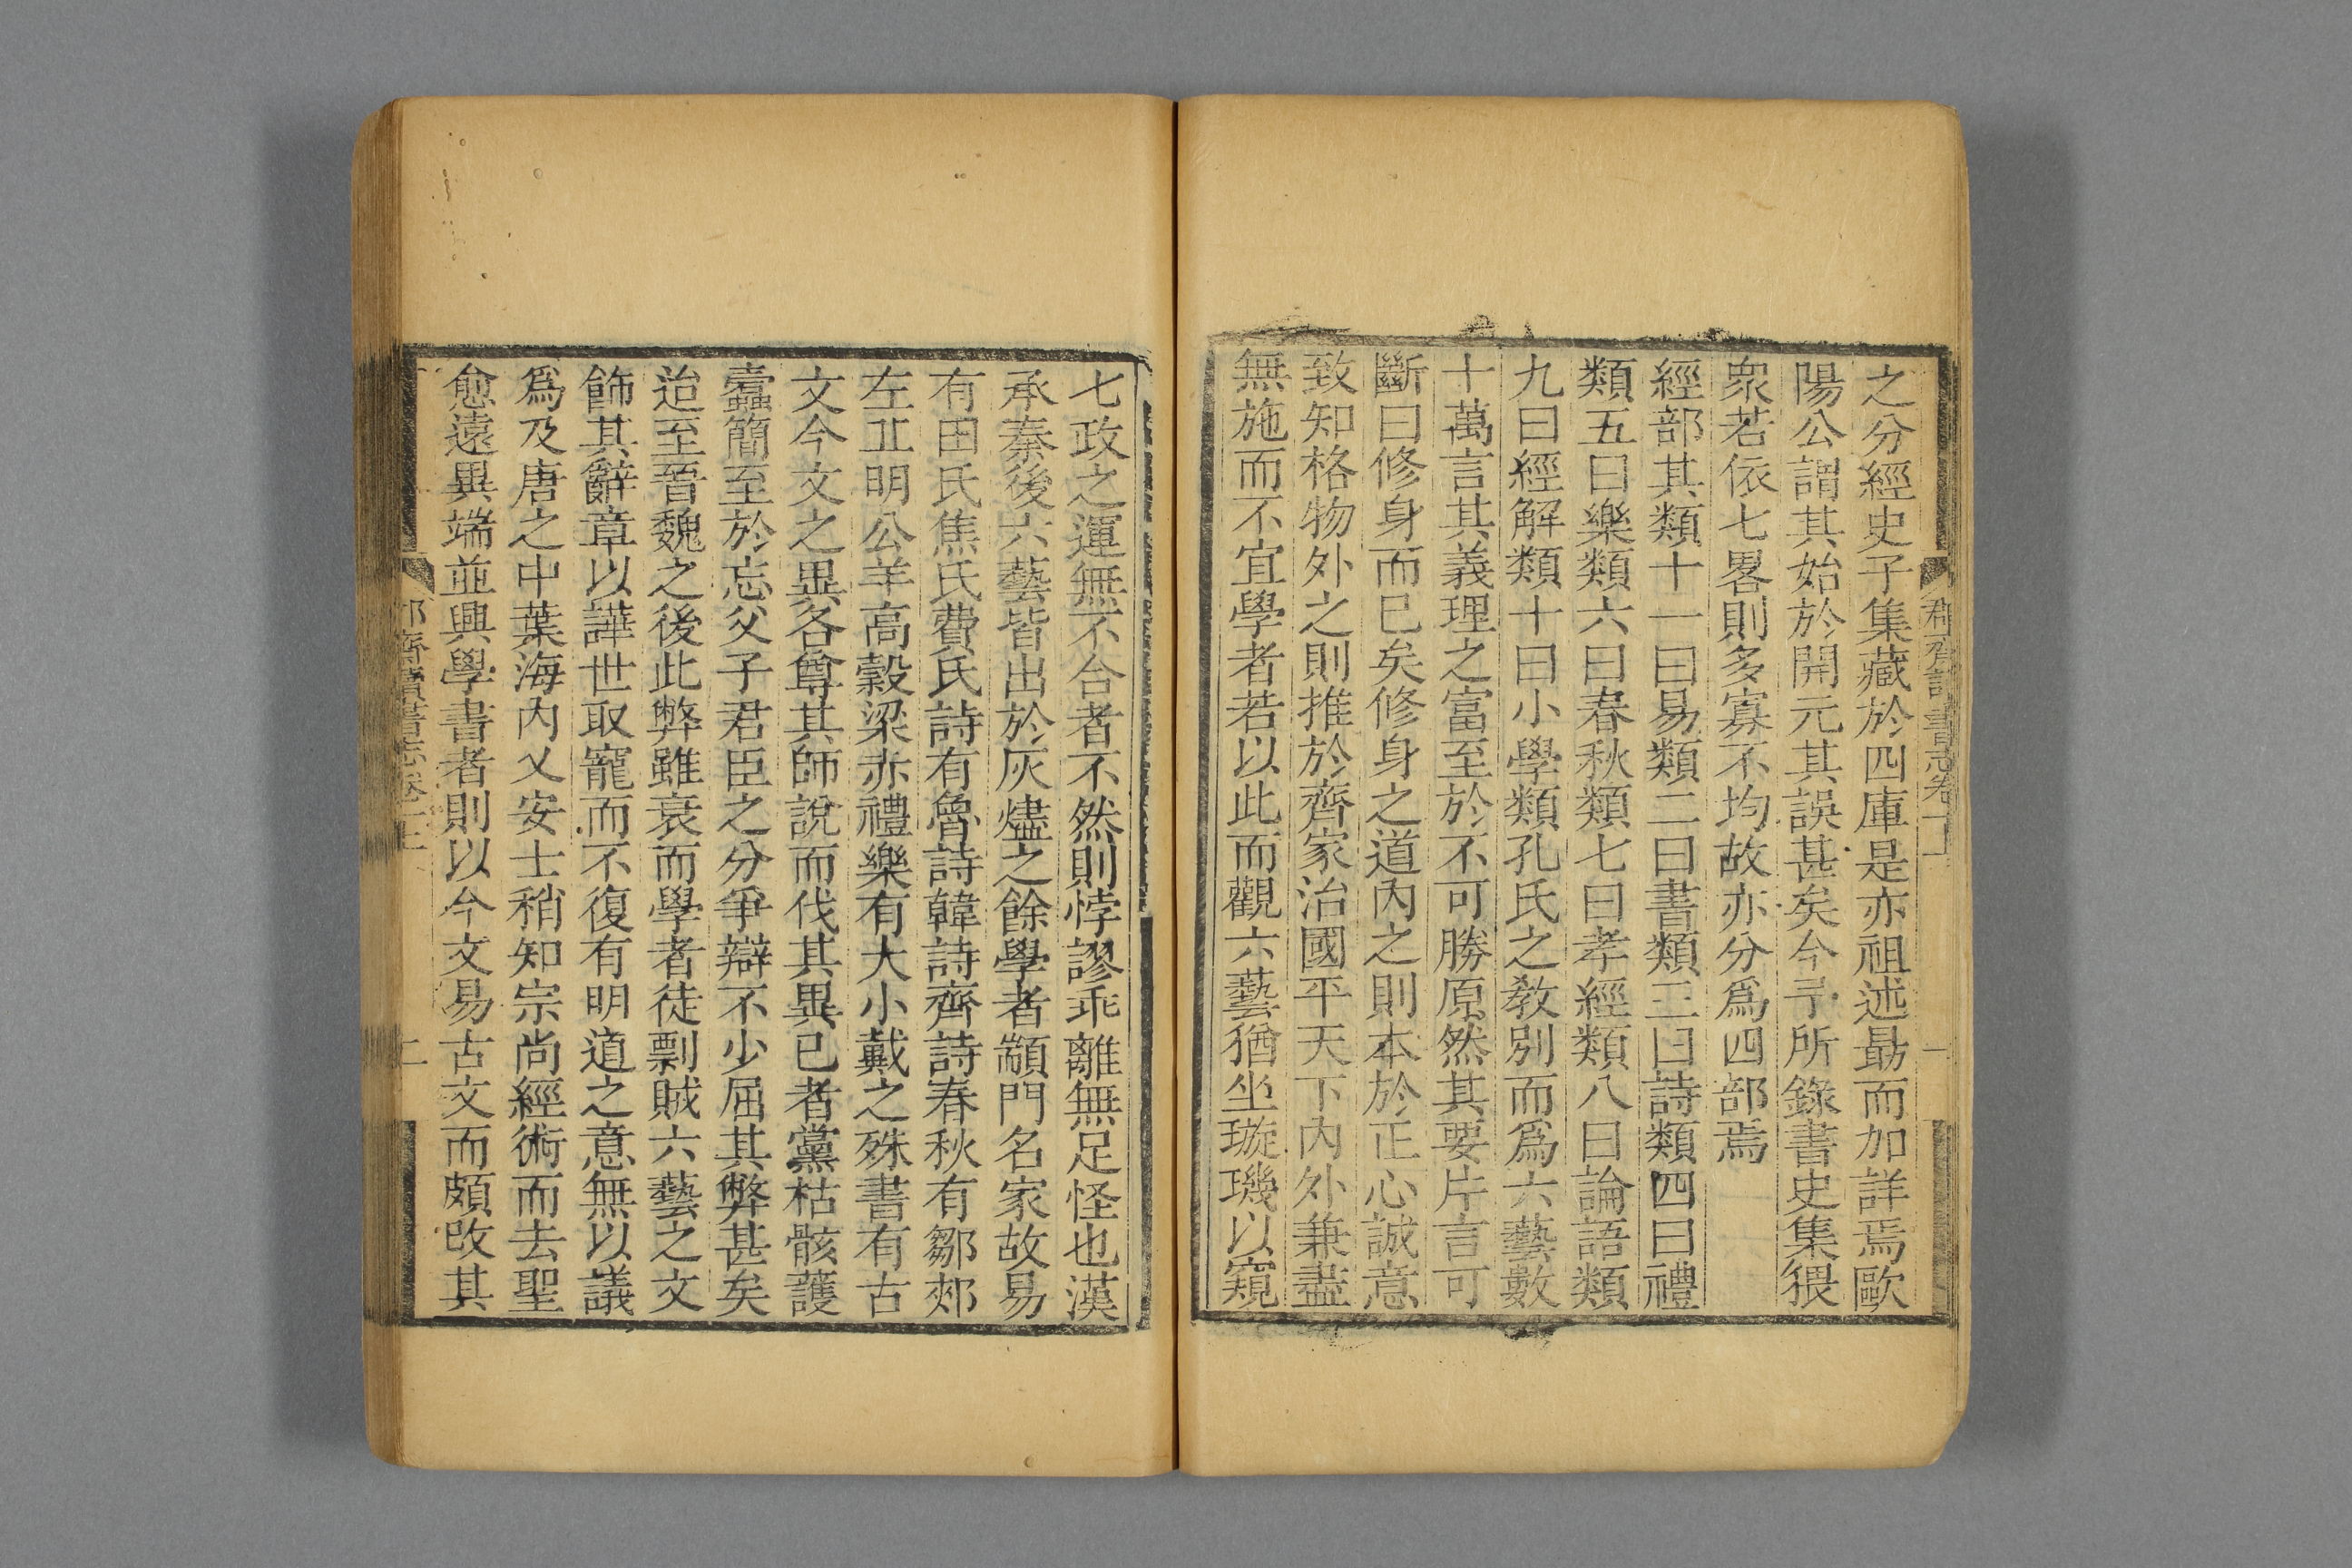 之分經史子集藏於四庫是亦祖述勗而加詳焉歐
陽公謂其始於開元其誤甚矣今予所錄書史集猥
衆若依七畧則多寡不均故亦分爲四部焉
經部其類十一曰易類二曰書類三曰詩類四曰禮
類五曰樂類六曰春秋類七曰孝經類八曰論語類
九曰經解類十曰小學類孔氏之敎別而爲六藝數
十萬言其義理之富至於不可勝原然其要片言可
斷曰修身而已矣修身之道內之則本於正心誠意
致知格物外之則推於齊家治國平天下內外兼盡
無施而不宜學者若以此而觀六藝猶坐璇璣以窺
七政之運無不合者不然則悖謬乖離無足怪也漢
承秦後六藝皆出於灰燼之餘學者顓門名家故易
有田氏焦氏費氏詩有魯詩韓詩齊詩春秋有鄒郟
左丘明公羊高穀梁赤禮樂有大小戴之殊書有古
文今文之異各尊其師說而伐其異己者黨枯骸護
蠹簡至於忘父子君臣之分爭辯不少屈其弊甚矣
迨至晉魏之後此弊雖衰而學者徒剽賊六藝之文
飾其辭章以譁世取寵而不復有明道之意無以議
爲及唐之中葉海內乂安士稍知宗尚經術而去聖
愈遠異端並興學書者則以今文易古文而頗改其
郡齋讀書志卷一上
二